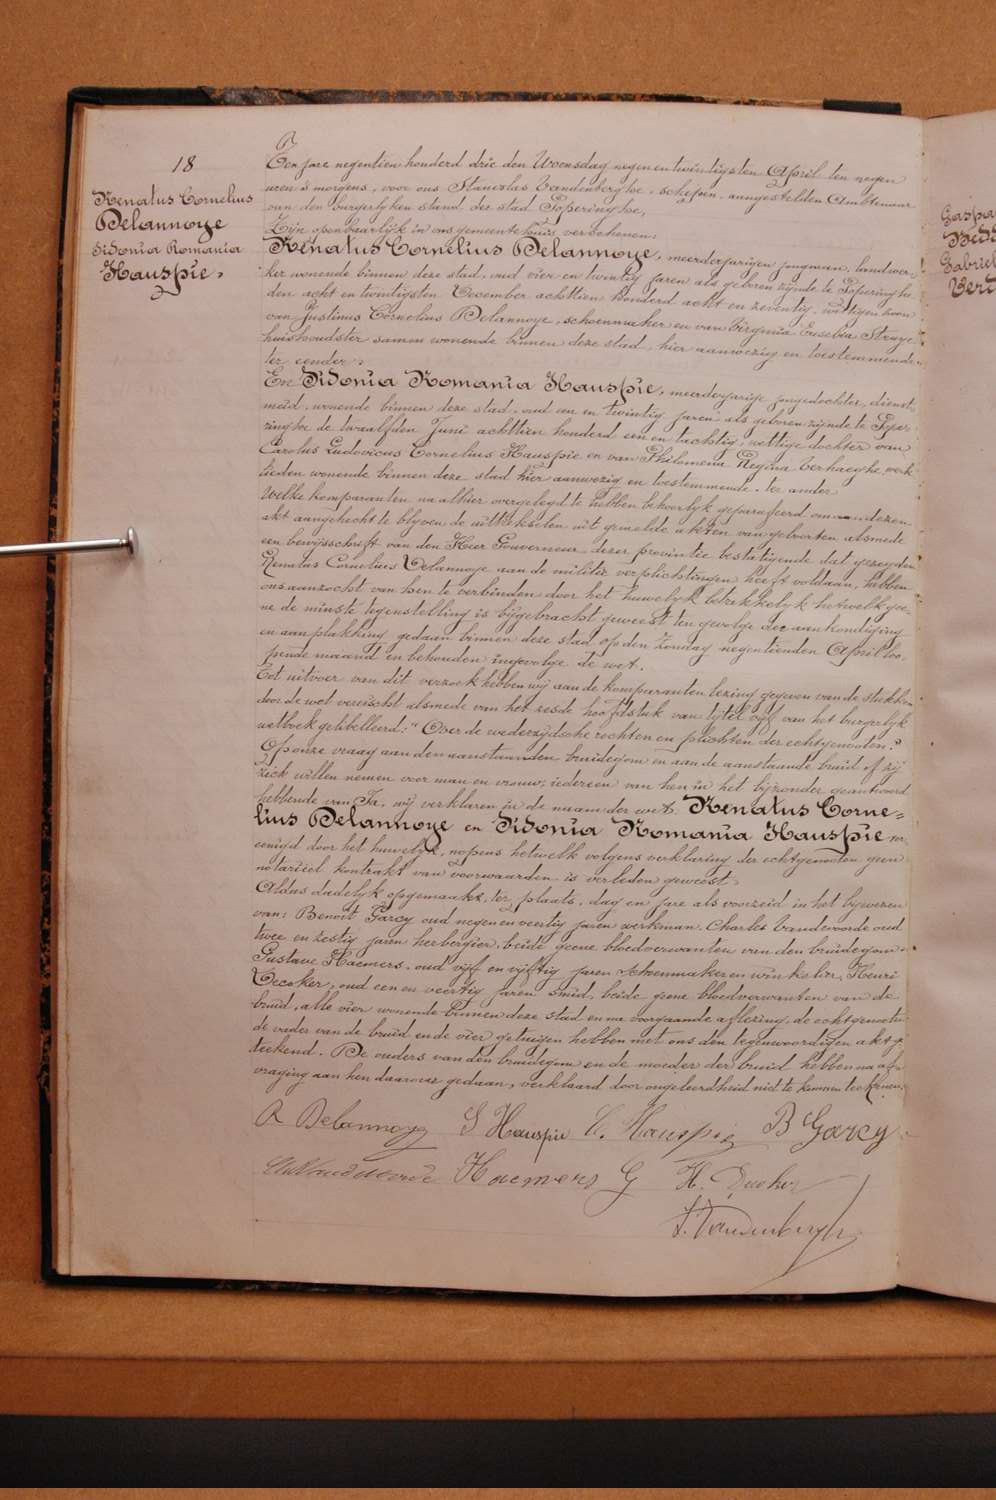 18
Renatus Cornelius
Delannoye
Sidonia Romania
Hauspie,
Ten jare negentien honderd drie den Woensdag negenentwintigsten April ten negen
uren 's morgens, voor ons Stanislas Vandenberghe, schepen-aangestelden Ambtenaar
van den burgerlyken stand der stad Poperinghe,
Zijn openbaarlijk in ons gemeentehuis verschenen:
Renatus Cornelius Delannoye, meerderjarigen jongman, landwer-
ker wonende binnen deze stad, oud vier en twintig jaren als geboren zijnde te Poperinghe
den acht en twintigsten November achttien honderd acht en zeventig, wettigen zoon
van Justinus Cornelius Delannoye, schoenmaker en van Virginia Eusebia Struye
huishoudster samen wonende binnen deze stad, hier aanwezig en toestemmende
ter eender.
En Sidonia Romania Hauspie, meerderjarige jongedochter, dienst-
meid, wonende binnen deze stad, oud een en twintig jaren als geboren zijnde te Pope-
ringhe de twaalfden Juni achttien honderd een en tachtig, wettige dochter van
Carolus Ludovicus Cornelius Hauspie en van Philomena Regina Verhaeghe, werk-
lieden wonende binnen deze stad hier aanwezig en toestemmende, ter ander
Welke komparanten na alhier overgelegd te hebben behoorlyk geparafeerd om aan dezen
akt aangehecht te blyven de uittrekselen uit gemelde akten van geboorten alsmede
een bewysschrift van den Heer Gouverneur dezer provintie bestatigende dat gezegden
Renatus Cornelius Delannoye aan de militie verplichtingen heeft voldaan, hebben
ons aanzocht van hen te verbinden door het huwelyk betrekkelyk hetwelk gee-
ne de minste tegenstelling is bijgebracht geweest ten gevolge der aankondiging
en aanplakking gedaan binnen deze stad op den Zondag negentienden April loo-
pende maand en behouden ingevolge de wet.
Tot uitvoer van dit verzoek hebben wij aan de komparanten lezing gegeven van de stukken
door de wet vereischt alsmede van het zesde hoofdstuk van tytel vyf van het burgerlyk
wetboek gelibelleerd: "Over de wederzydsche rechten en plichten der echtgenooten."
Op onze vraag aan den aanstaanden bruidegom en aan de aanstaande bruid of zij
zich willen nemen voor man en vrouw, iedereen van hen in het byzonder geantwoord
hebbende van Ja, wij verklaren in de naam der wet Renatus Corne-
lius Delannoye en Sidonia Romania Hauspie ver-
eenigd door het huwelyk, nopens hetwelk volgens verklaring der echtgenooten geen
notariëel kontrakt van voorwaarden is verleden geweest.
Aldus dadelyk opgemaakt, ter plaats, dag en jare als voorzeid in het bywezen
van: Benoit Garcy oud negenenveertig jaren werkman, Charles Vandevoorde oud
twee en zestig jaren herbergier, beide geene bloedverwanten van den bruidegom
Gustave Haemers, oud vijf en vijftig jaren schoenmaker en winkelier, Henri
Decoker, oud een en veertig jaren smid, beide geene bloedverwanten van de
bruid, alle vier wonende binnen deze stad en na voorgaande aflezing, de echtgenooten
de vader van de bruid en de vier getuigen hebben met ons den tegenwoordigen akt ge-
teekend. De ouders van den bruidegom en de moeder der bruid hebben na af-
vraging aan hen daarover gedaan, verklaard door ongeleerdheid niet te kunnen teekenen.
R Delannoye S Hauspie C. Hauspie B Garcy
Ch Vandevoorde Haemers G H. Decker
S. Vandenberghe
Gaspa
Gabriel